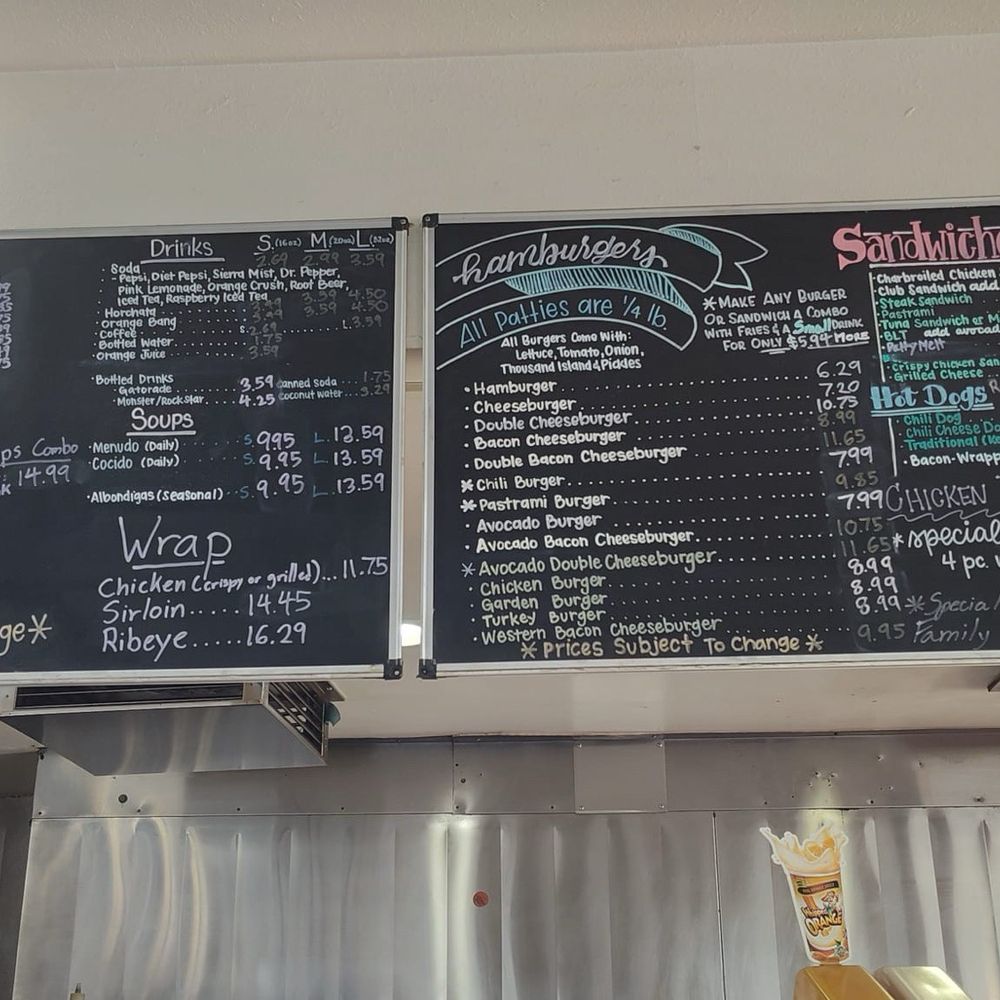 Drinks S.(16oz) M(20oz) L(32oz)
Soda 2.69 2.99 3.59
Pepsi, Diet Pepsi, Sierra Mist, Dr. Pepper,
Pink Lemonade, Orange Crush, Root Beer,
Iced Tea, Raspberry Iced Tea
Horchata 3.59 4.50
Orange Bang 3.59 4.50
Coffee S.2.69 L.3.59
Bottled Water 1.75
Orange Juice 3.59
Bottled Drinks
Gatorade 3.59 canned soda 1.75
Monster/Rockstar 4.25 coconut water 3.29
Soups
Menudo (Daily) S. 9.95 L. 13.59
Cocido (Daily) S. 9.95 L. 13.59
Albondigas (seasonal) S. 9.95 L. 13.59
ps Combo
14.99
Wrap
Chicken (crispy or grilled)... 11.75
Sirloin..... 14.45
Ribeye..... 16.29
ge*
hamburgers
All Patties are 1/4 lb.
All Burgers Come With:
Lettuce, Tomato, Onion,
Thousand Island & Pickles
*Make Any Burger
Or Sandwich A Combo
With Fries & A Small Drink
For Only $5.94 More
Hamburger 6.29
Cheeseburger 7.20
Double Cheeseburger 10.75
Bacon Cheeseburger 8.99
Double Bacon Cheeseburger 11.65
*Chili Burger 7.99
*Pastrami Burger 9.85
Avocado Burger 7.99
Avocado Bacon Cheeseburger 10.75
*Avocado Double Cheeseburger 11.65
Chicken Burger 8.99
Garden Burger 8.99
Turkey Burger 8.99
Western Bacon Cheeseburger 9.95
*Prices Subject To Change*
Sandwich
Charbroiled Chicken
Club Sandwich add
Steak Sandwich
Pastrami
Tuna Sandwich or M
BLT add avocad
Patty Melt
Crispy Chicken San
Grilled Cheese
Hot Dogs
Chili Dog
Chili Cheese Do
Traditional
Bacon-Wrapp
Chicken
*Special
4 pc.
*Special
Family
Whipped
ORANGE